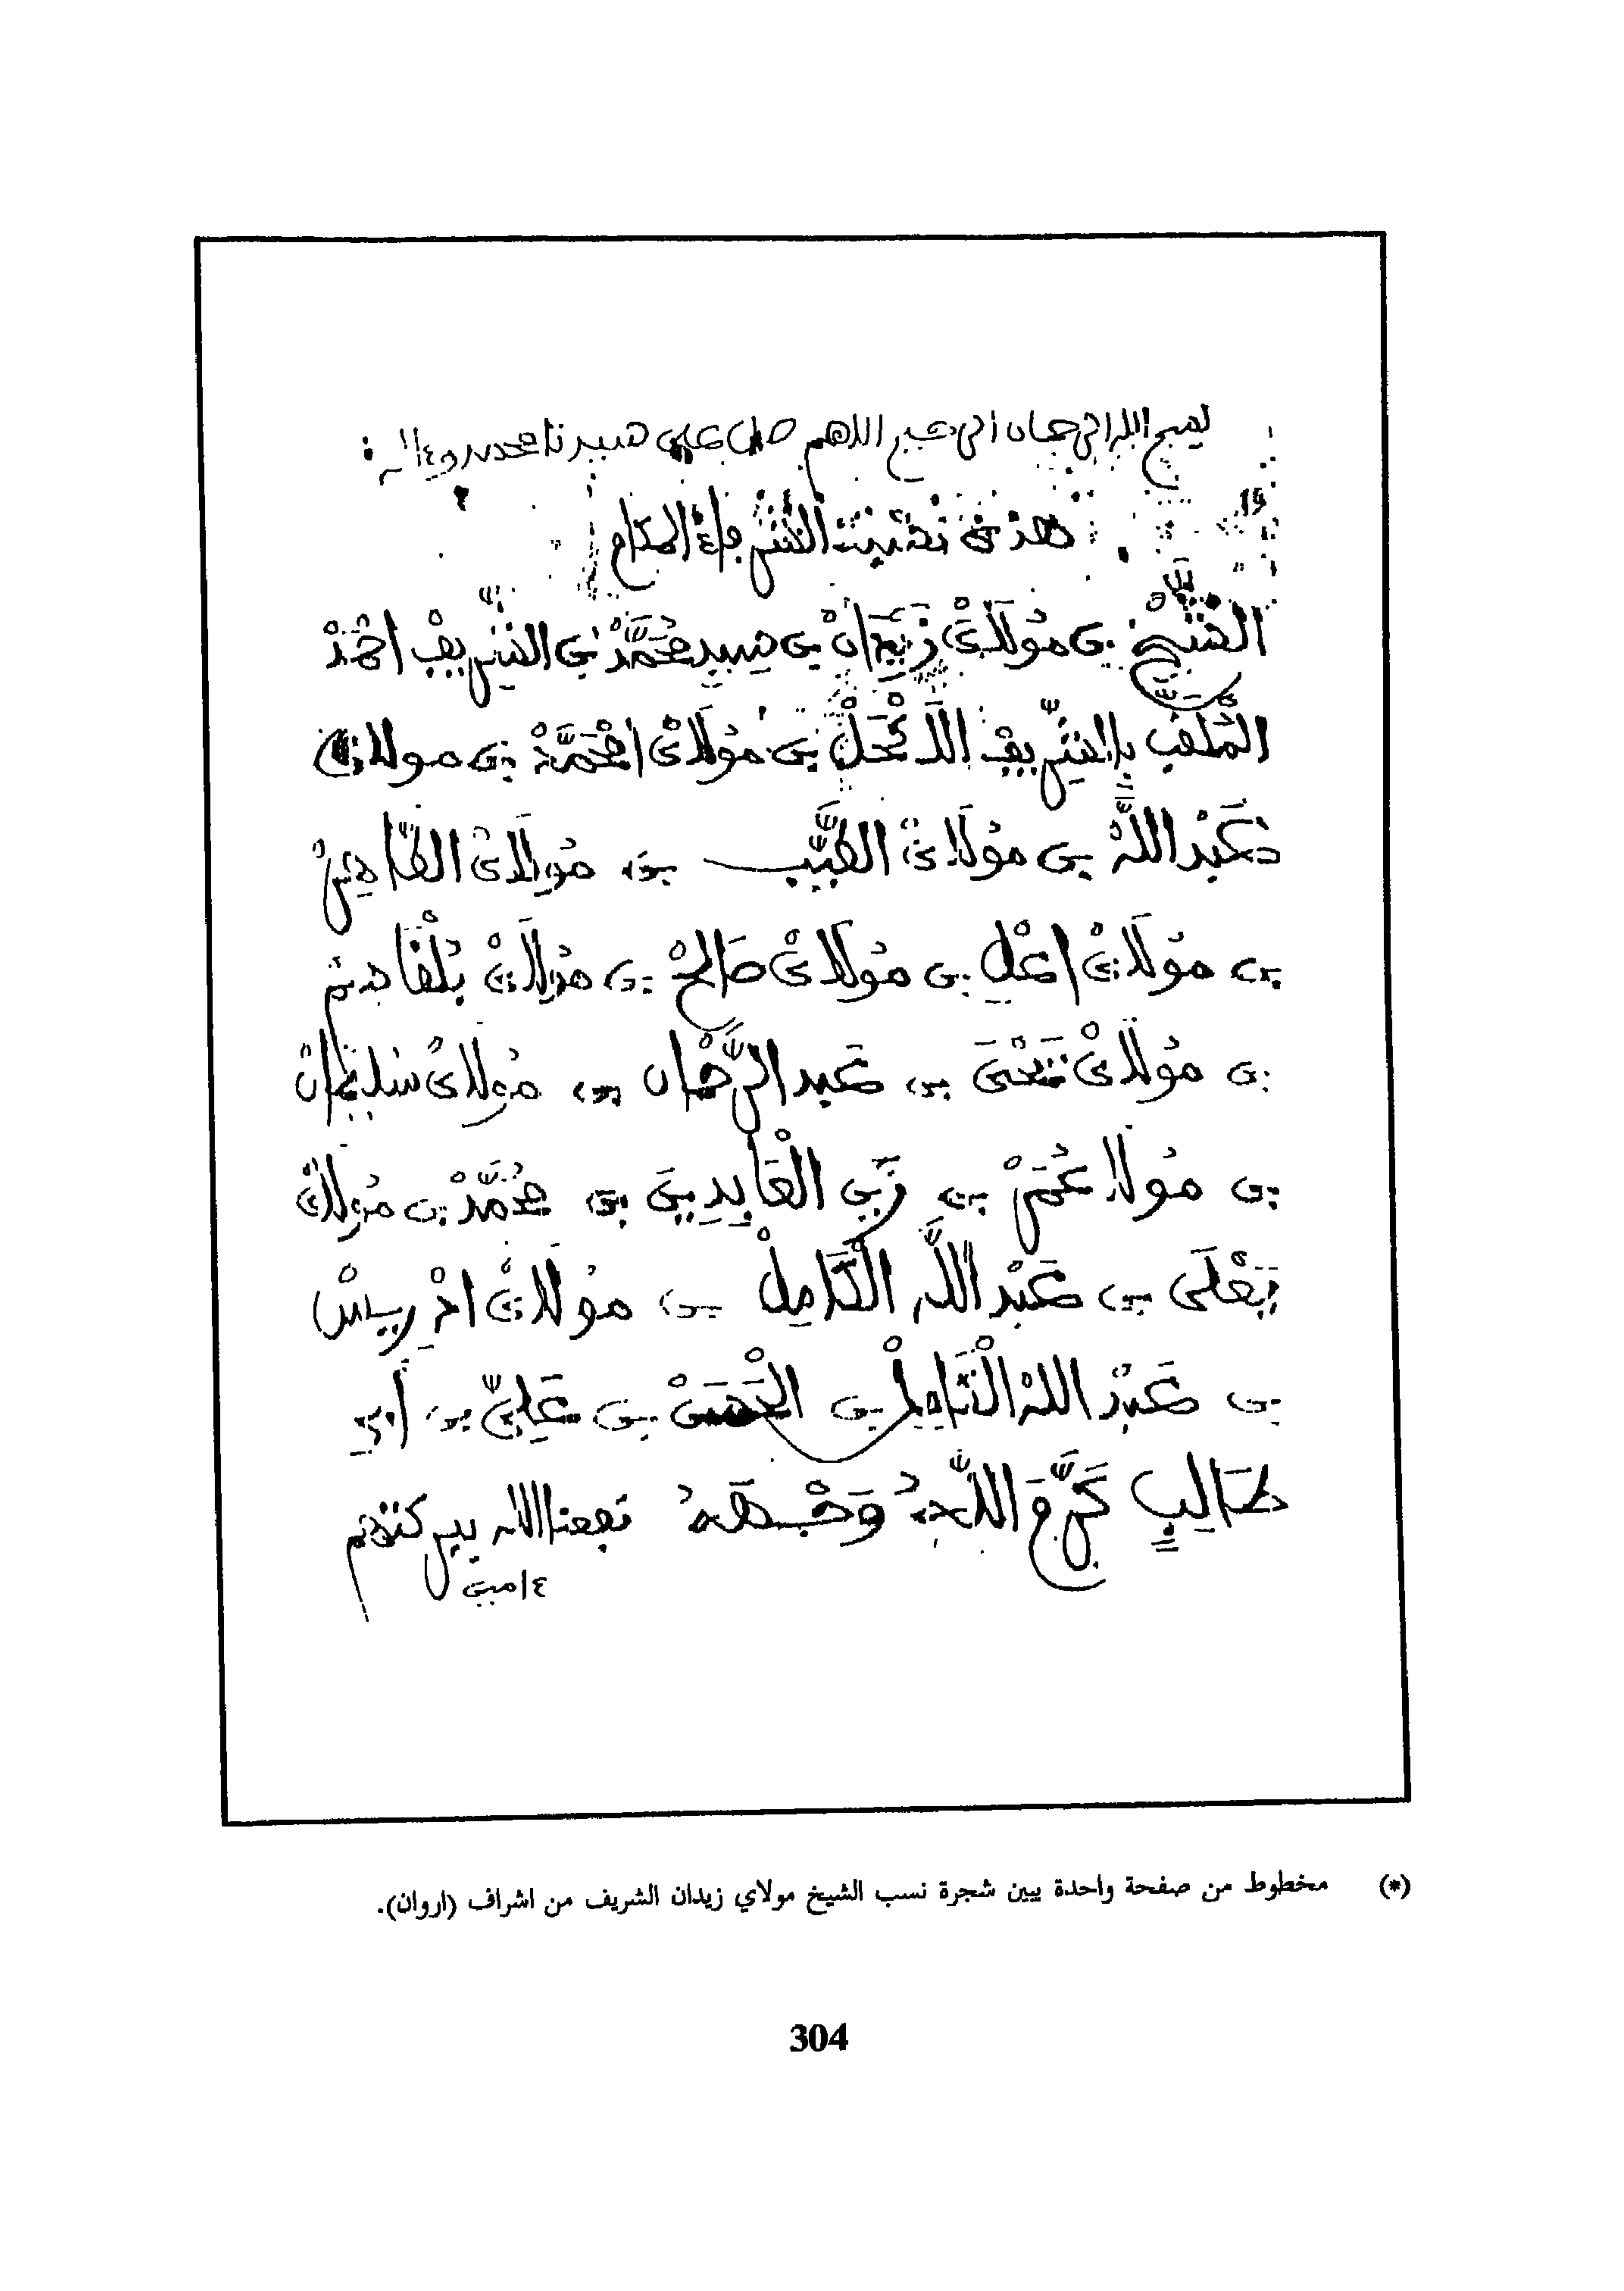 بسم الله الرحمان الرحيم اللهم صل على سيدنا محمد وءاله
هذه نسبت الشرفاء الكرام
الشَّيْخْ بن مُولَايْ زَيْدَانْ بن سيد مُحَمَّدْ بن الشريف احْمَدْ
الْمُلَقب بالشَّريفْ الَاكْحَلْ بن مُولَايْ امْحَمَّدْ بن مولاي
عَبْد اللَّهْ بن مُولَايْ الطَّيِّب بن مُولَايْ الطَّاهِرْ
بن مُولَايْ اعْلِ بن مُولَايْ صَالحْ بن مُولَايْ بُلْقَاسِم
بن مُولَايْ يَحْيَى بن عَبد الرَّحْمَان بن مُولَايْ سُلَيْمَانْ
بن مُولَاي عُمَرْ بن زَيْنِ الْعَابِدِينَ بن مُحَمَّدْ بن مُولَايْ
يَعْلَى بن عَبْد اللَّه الْكَامِلْ بن مُولَايْ ادْرِيسْ
بن عَبْد اللهْ الْكَامِلْ بن الْحَسَنْ بن عَلِيّ بن أَبِي
طَالِبٍ كَرَّمَ اللَّهُ وَجْهَهُ نفعنا الله ببركتهم
ءامين
(*) مخطوط من صفحة واحدة يبين شجرة نسب الشيخ مولاي زيدان الشريف من اشراف (اروان).
304